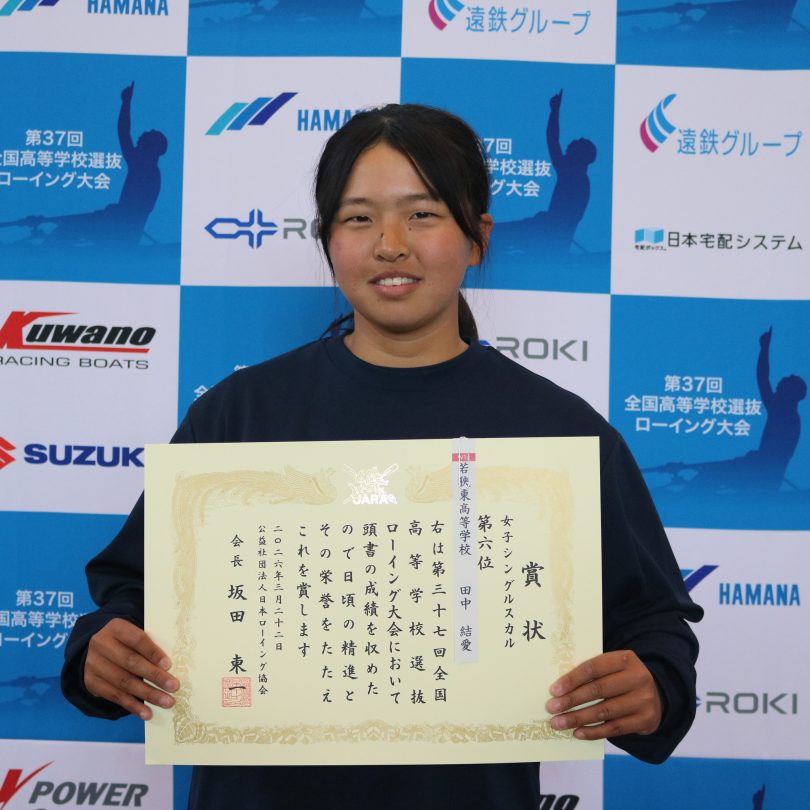 HAMANA
遠鉄グループ
第37回
全国高等学校選抜
ローイング大会
HAMANA
7回
学校選抜
ング大会
遠鉄グループ
RO
宅配ボックス
日本宅配システム
Kuwano
RACING BOATS
ROKI
第37回
全国高等学校選抜
ローイング大会
SUZUK
JARA
賞状
女子シングルスカル
第六位
若狭東高等学校 田中 結愛
右は第三十七回全国
高等学校選抜
ローイング大会において
頭書の成績を収めた
ので日頃の精進と
その栄誉をたたえ
これを賞します
二〇二六年三月二十二日
公益社団法人日本ローイング協会
会長 坂田 東一
第37回
全国高等学校選抜
ローイング大会
HAMANA
ROKI
POWER